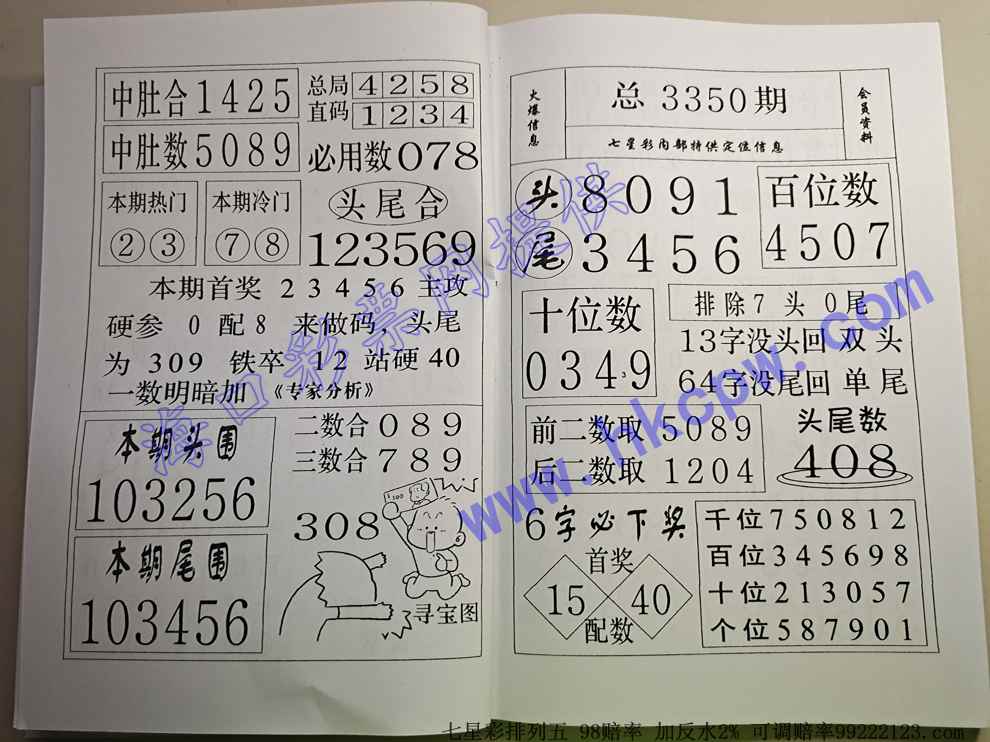 中肚合1425
总局 4258
直码 1234
中肚数5089
必用数078
本期热门
②③
本期冷门
⑦⑧
头尾合
123569
本期首奖 23456 主攻
硬参 0 配8 来做码，头尾
为 309 铁卒 12 站硬40
一数明暗加 《专家分析》
本期头围
103256
二数合 089
三数合 789
308
本期尾围
103456
寻宝图
火爆信息
总 3350期
七星彩内部特供定位信息
会员资料
头 8091
尾 3456
百位数
4507
十位数
0349
排除7 头 0尾
13字没头回 双 头
64字没尾回 单 尾
前二数取 5089
后二数取 1204
头尾数
408
6字必下奖
首奖
15 40
配数
千位750812
百位345698
十位213057
个位587901
海口彩票网提供
www.hkcpw.com
七星彩排列五 98赔率 加反水2% 可调赔率99222123.com